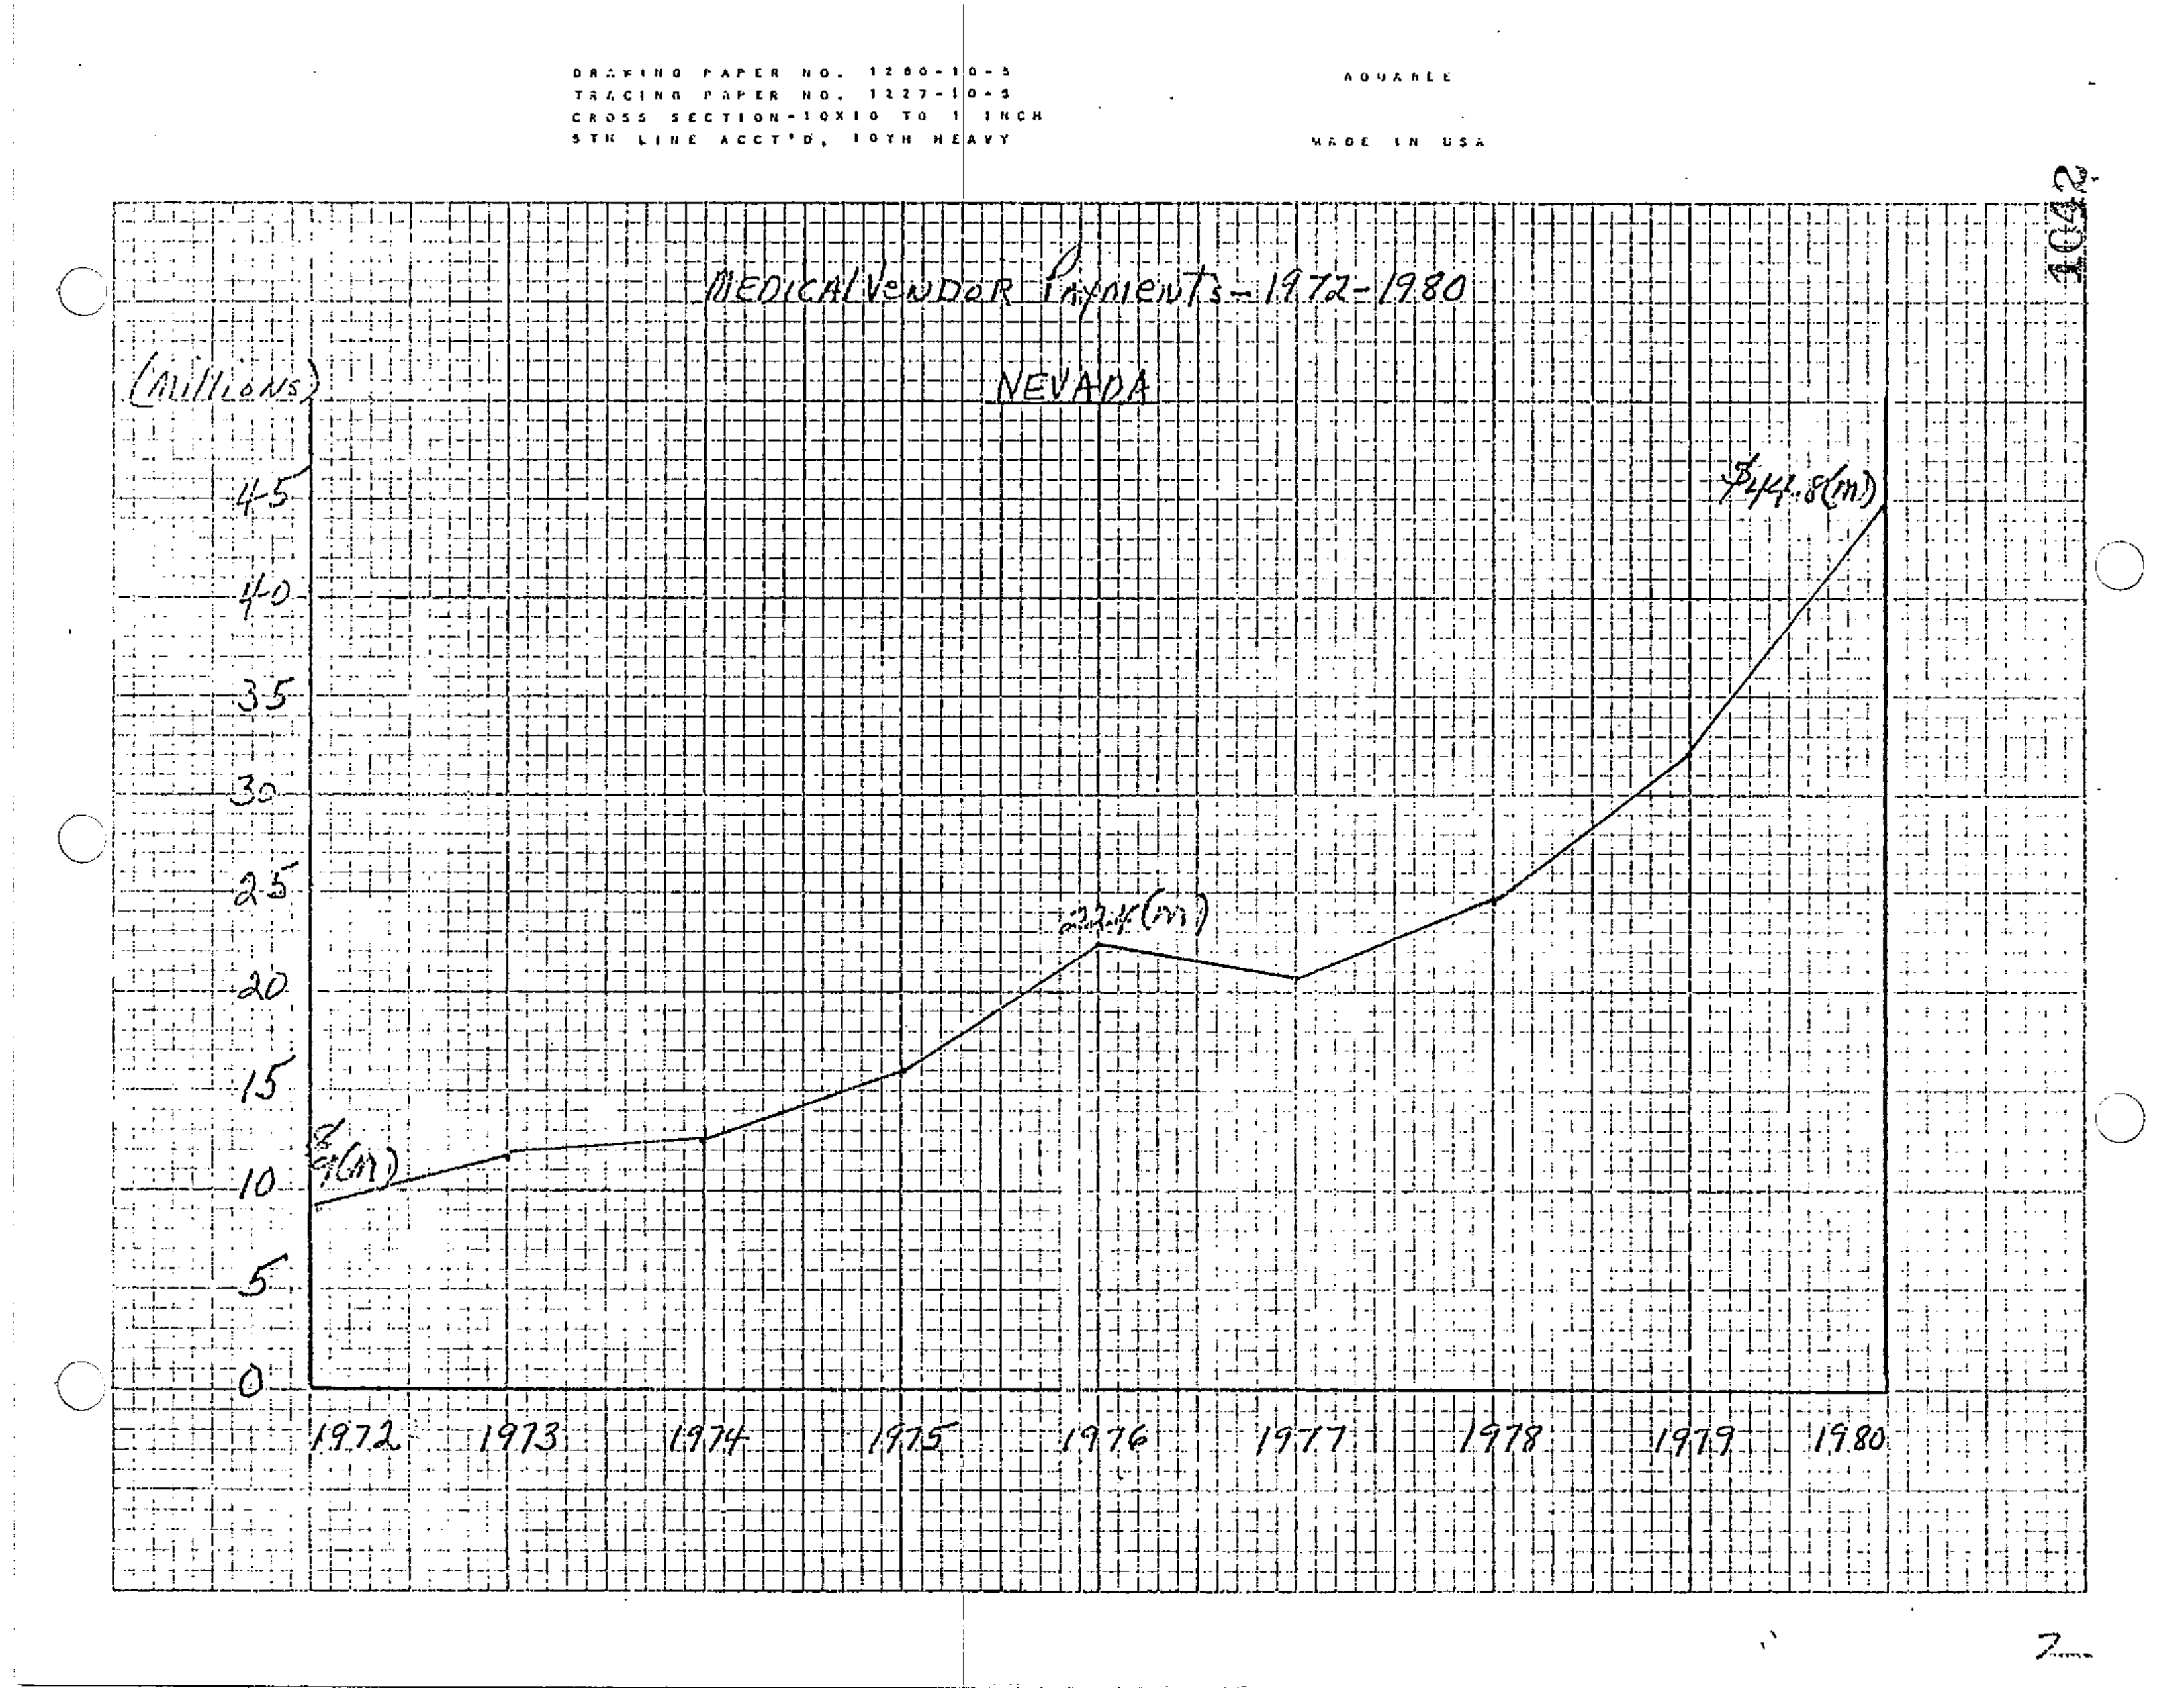 DRAWING PAPER NO. 1280-10-5
TRACING PAPER NO. 1227-10-5
CROSS SECTION-10X10 TO 1 INCH
5TH LINE ACCT'D, 10TH HEAVY
MADE IN USA
1042
MEDICAL VENDOR PAYMENTS-1972-1980
NEVADA
(MILLIONS)
45
40
35
30
25
20
15
10
5
0
$44.8(M)
22.4(M)
$9(M)
1972 1973 1974 1975 1976 1977 1978 1979 1980